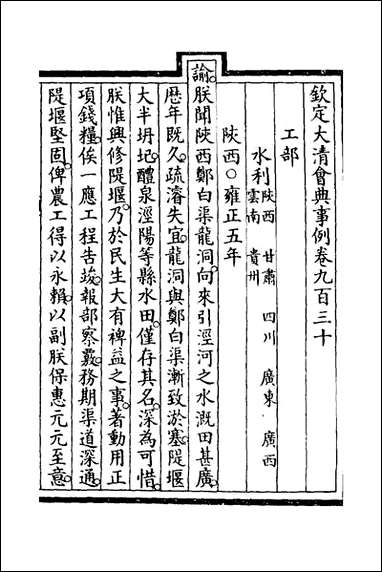 欽定大清會典事例卷九百三十
工部
水利陝西 甘肅 四川 廣東 廣西
雲南 貴州
陝西○雍正五年
諭朕聞陝西鄭白渠龍洞向來引涇河之水溉田甚廣
歷年既久疏濬失宜龍洞與鄭白渠漸致淤塞隄堰
大半坍圮醴泉涇陽等縣水田僅存其名深為可惜
朕惟興修隄堰乃於民生大有裨益之事著動用正
項錢糧俟一應工程告竣報部察覈務期渠道深通
隄堰堅固俾農工得以永賴以副朕保惠元元至意